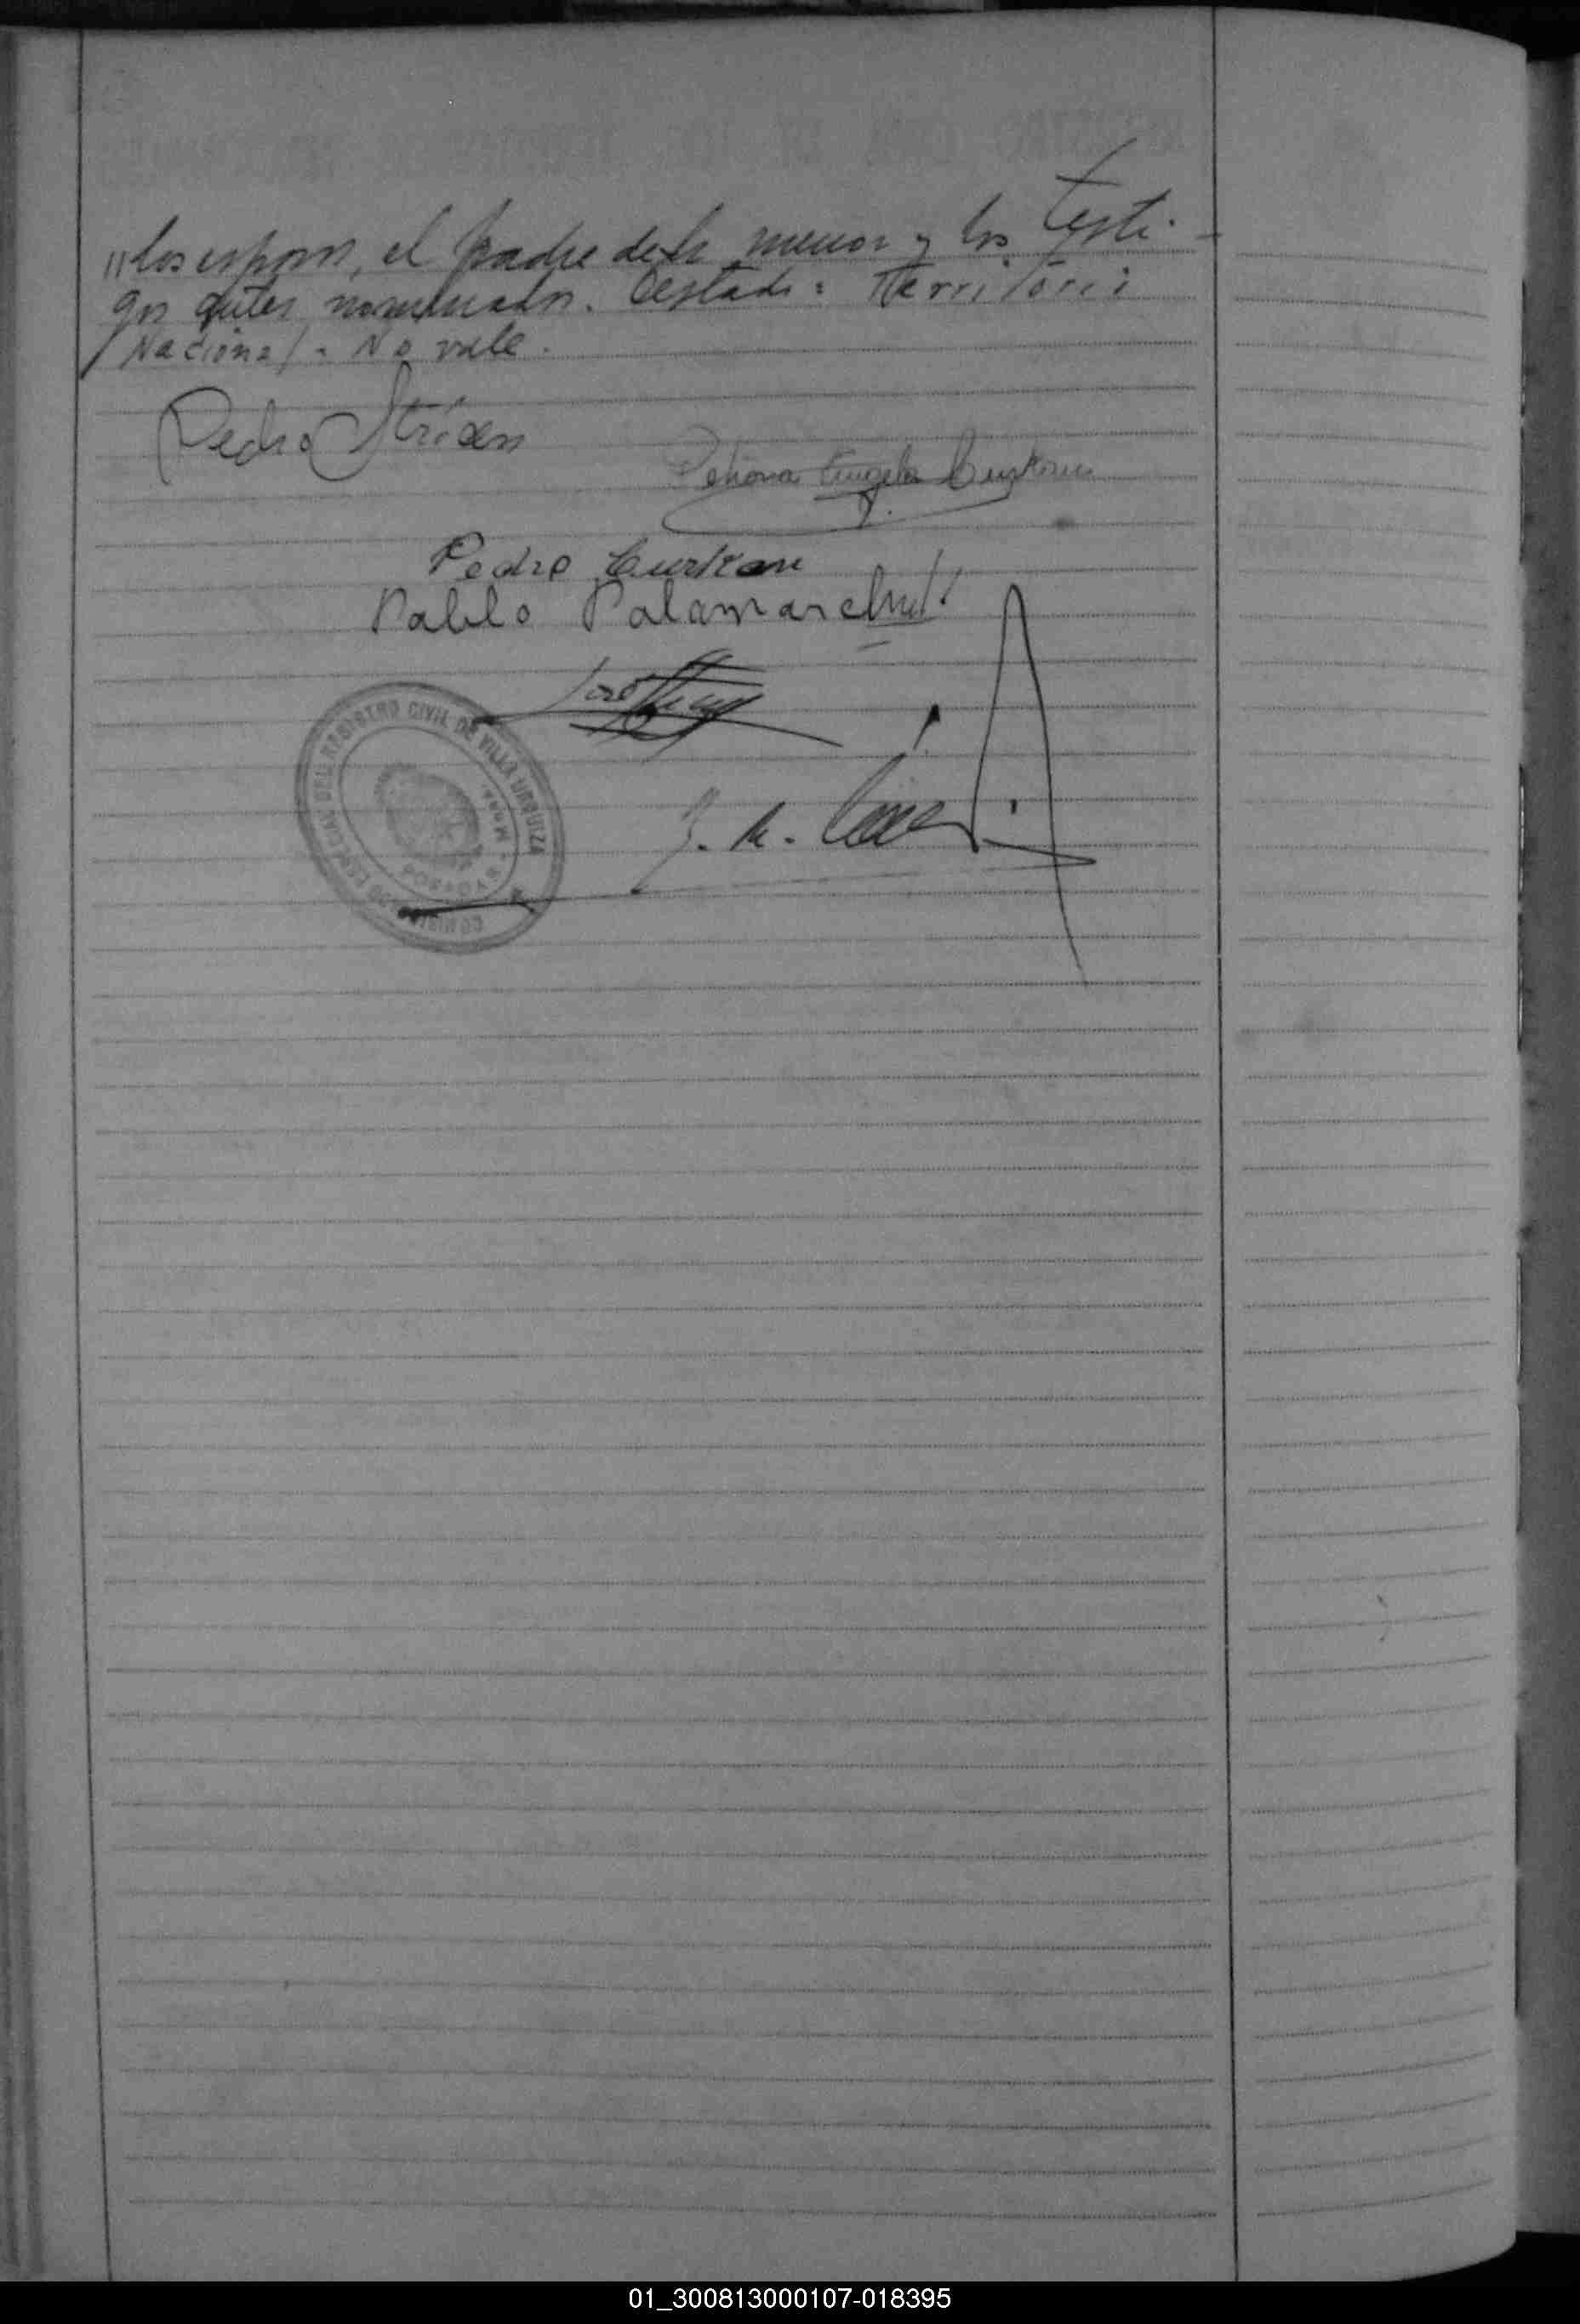 "los esposos, el padre de la menor y los testi-
gos antes nominados. Testado: Territorio
Nacional. No vale.
Pedro Striden
Petrona Angela Curkan
Pedro Curkan
Pablo Palamarchuk
José
J. A.
REGISTRO CIVIL DE VILLA URQUIZA
01_300813000107-018395